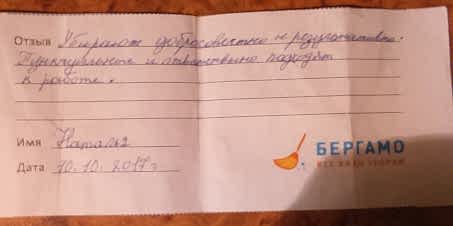 Отзыв Убирают добросовестно и результативно.
Пунктуально и ответственно подходят
к работе.
Имя Наталья
Дата 10.10.2017г
БЕРГАМО
ВСЕ ВИДЫ УБОРКИ